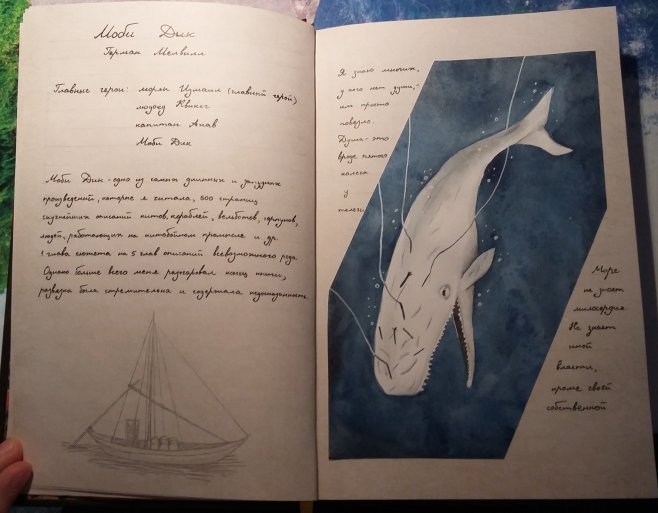 Моби Дик
Герман Мелвилл
Главные герои: моряк Измаил (главный герой)
людоед Квикег
капитан Ахав
Моби Дик
Моби Дик - одно из самых длинных и занудных
произведений, которое я читала, 600 страниц
скучнейших описаний китов, кораблей, вельботов, гарпунов,
людей, работающих на китобойном промысле и др.
1 глава сюжета на 5 глав описаний всевозможного рода.
Однако больше всего меня разочаровал конец книги,
развязка была стремительна и содержала недосказанность
Я знаю многих,
у кого нет души, -
им просто
повезло.
Душа - это
вроде пятого
колеса
у
телеги
Море
не знает
милосердия.
Не знает
иной
власти,
кроме своей
собственной